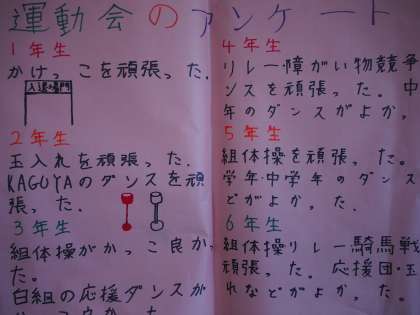 運動会のアンケート
1年生
かけっこを頑張った.
入退場門
2年生
玉入れを頑張った.
KAGUYAのダンスを頑
張った.
3年生
組体操がかっこ良かっ
た.
白組の応援ダンスが
4年生
リレー障がい物競争
ンスを頑張った. 中
年のダンスがよか.
5年生
組体操を頑張った.
学年・中学年のダンス
どがよかった.
6年生
組体操リレー騎馬戦
頑張った. 応援団・玉
れなどがよかった.